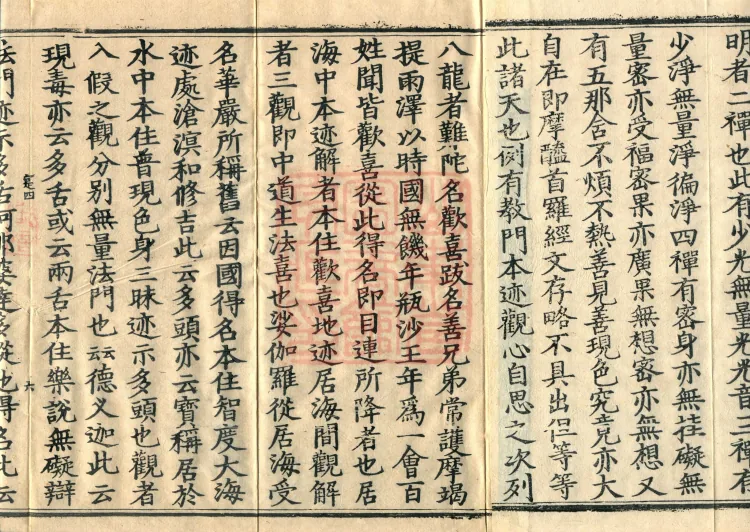 明者二禪也此有少光無量光光音三禪有
少淨無量淨徧淨四禪有密身亦無挂礙無
量密亦受福密果亦廣果無想密亦無想又
有五那舍不煩不熱善見善現色究竟亦大
自在即摩醯首羅經文存略不具出但等等
此諸天也例有教門本迹觀心自思之次列
八龍者難陀名歡喜跋名善兄弟常護摩竭
提雨澤以時國無饑年瓶沙王年爲一會百
姓聞皆歡喜從此得名即目連所降者也居
海中本迹解者本住歡喜地迹居海間觀解
者三觀即中道生法喜也娑伽羅從居海受
名華嚴所稱舊云因國得名本住智度大海
迹處滄溟和修吉此云多頭亦云寶稱居於
水中本住普現色身三昧迹示多頭也觀者
入假之觀分別無量法門也云云德义迦此云
現毒亦云多舌或云兩舌本住樂說無礙辯
法門迹示多舌阿那婆達多從池得名此云
六